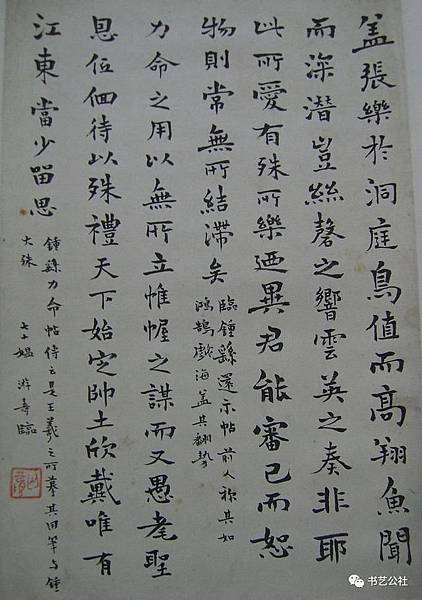 盖張樂於洞庭鳥值而高翔魚聞
而深潛豈絲磬之響雲英之奏非耶
此所愛有殊所樂迺異君能審己而恕
物則常無所結滯矣
臨鍾繇還示帖前人称其如
鴻鵠戲海盖其翻勢
力命之用以無所立帷幄之謀而又愚耄聖
恩低佪待以殊禮天下始定帥土欣戴唯有
江東當少留思
鍾繇力命帖傳之是王羲之所摹其用筆与鍾
大殊 七十媼 游壽臨
书艺公社